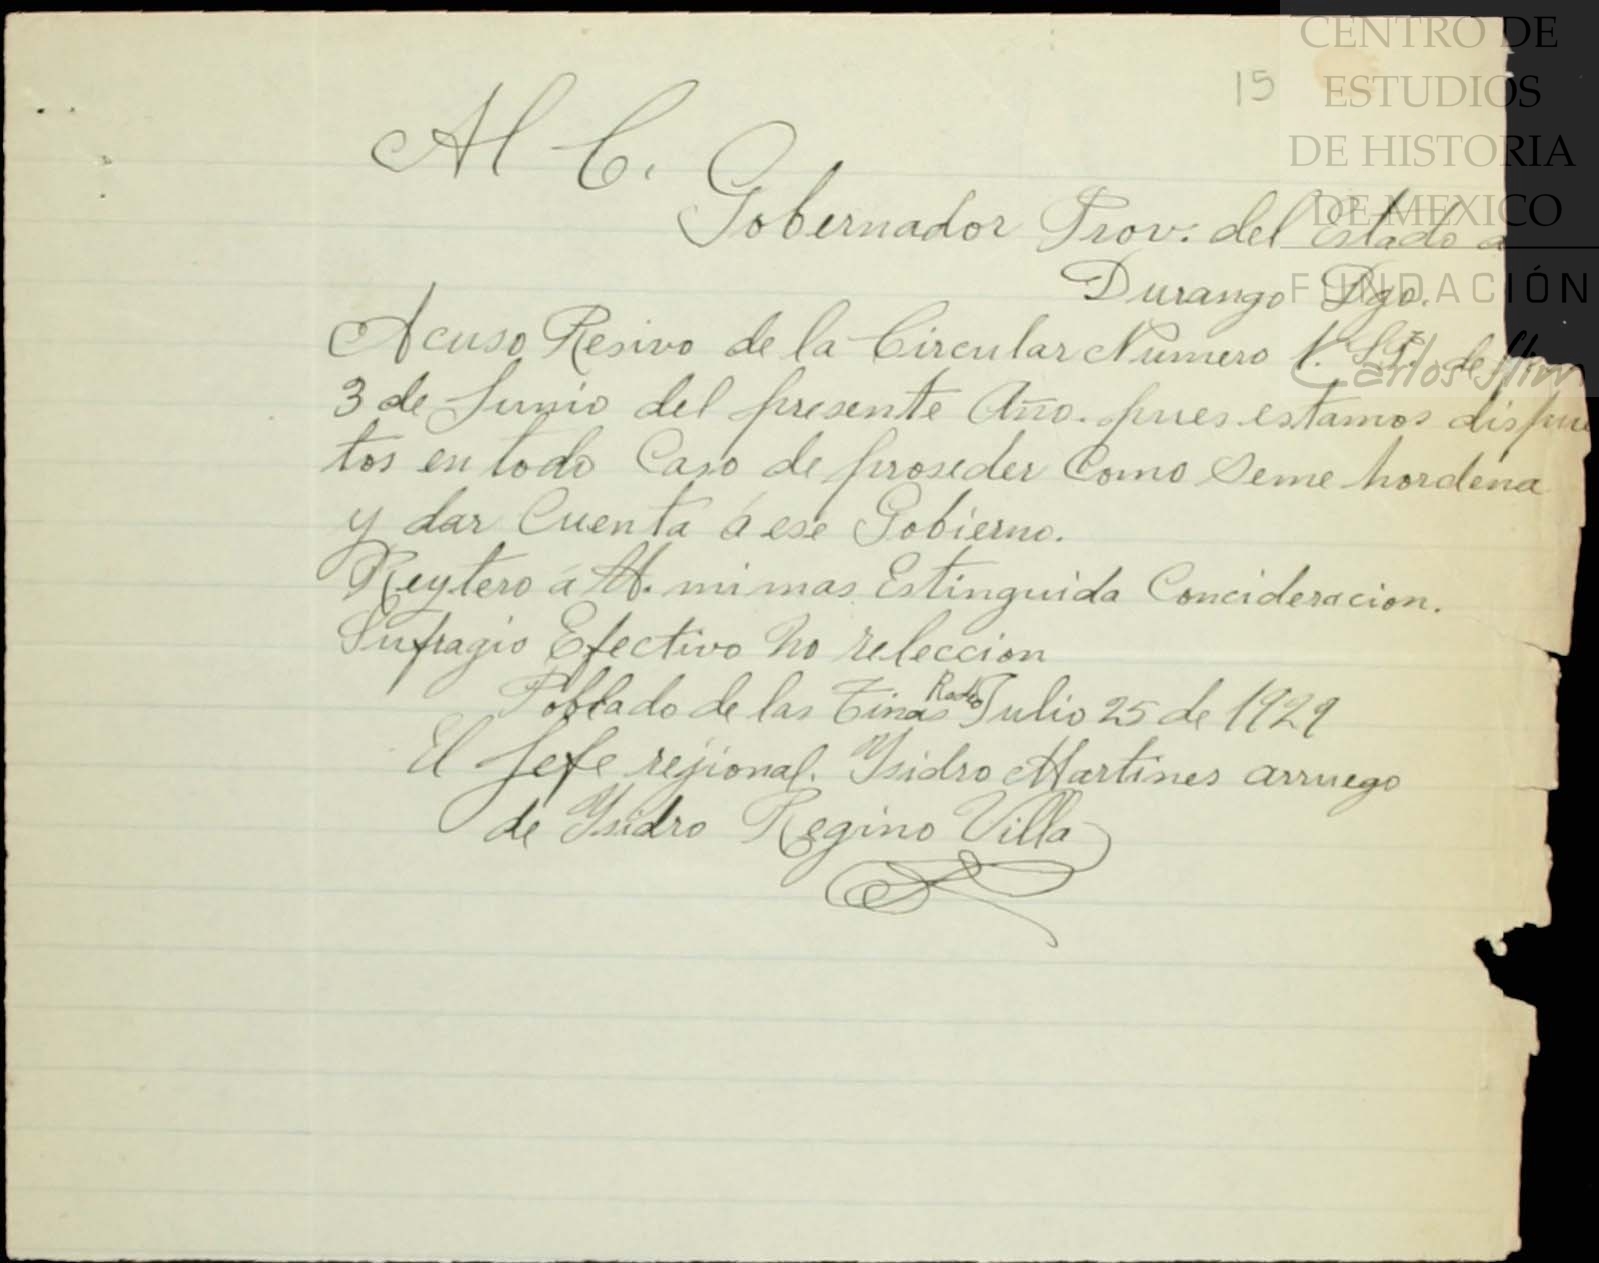 CENTRO DE
ESTUDIOS
DE HISTORIA
DE MEXICO
FUNDACIÓN
Carlos Slim
15
Al C.
Gobernador Prov. del Estado a
Durango Dgo.
Acuso Resivo de la Circular Numero 1. de
3 de Junio del presente Año. pues estamos dispue
tos en todo Caso de proseder Como Seme hordena
y dar Cuenta á ese Gobierno.
Reytero á U. mi mas Estinguida Concideracion.
Sufragio Efectivo No releccion
Poblado de las Tinas Julio 25 de 1929
El Jefe rejional. Ysidro Martines arruego
de Ysidro Regino Villa